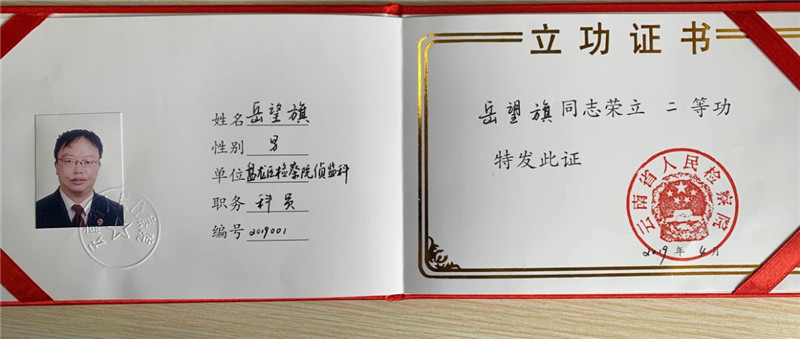 姓名 岳望旗
性别 男
单位 盘龙区检察院侦监科
职务 科员
编号 2019001
立功证书
岳望旗同志荣立 二 等功
特发此证
云南省人民检察院
2019 年 4 月